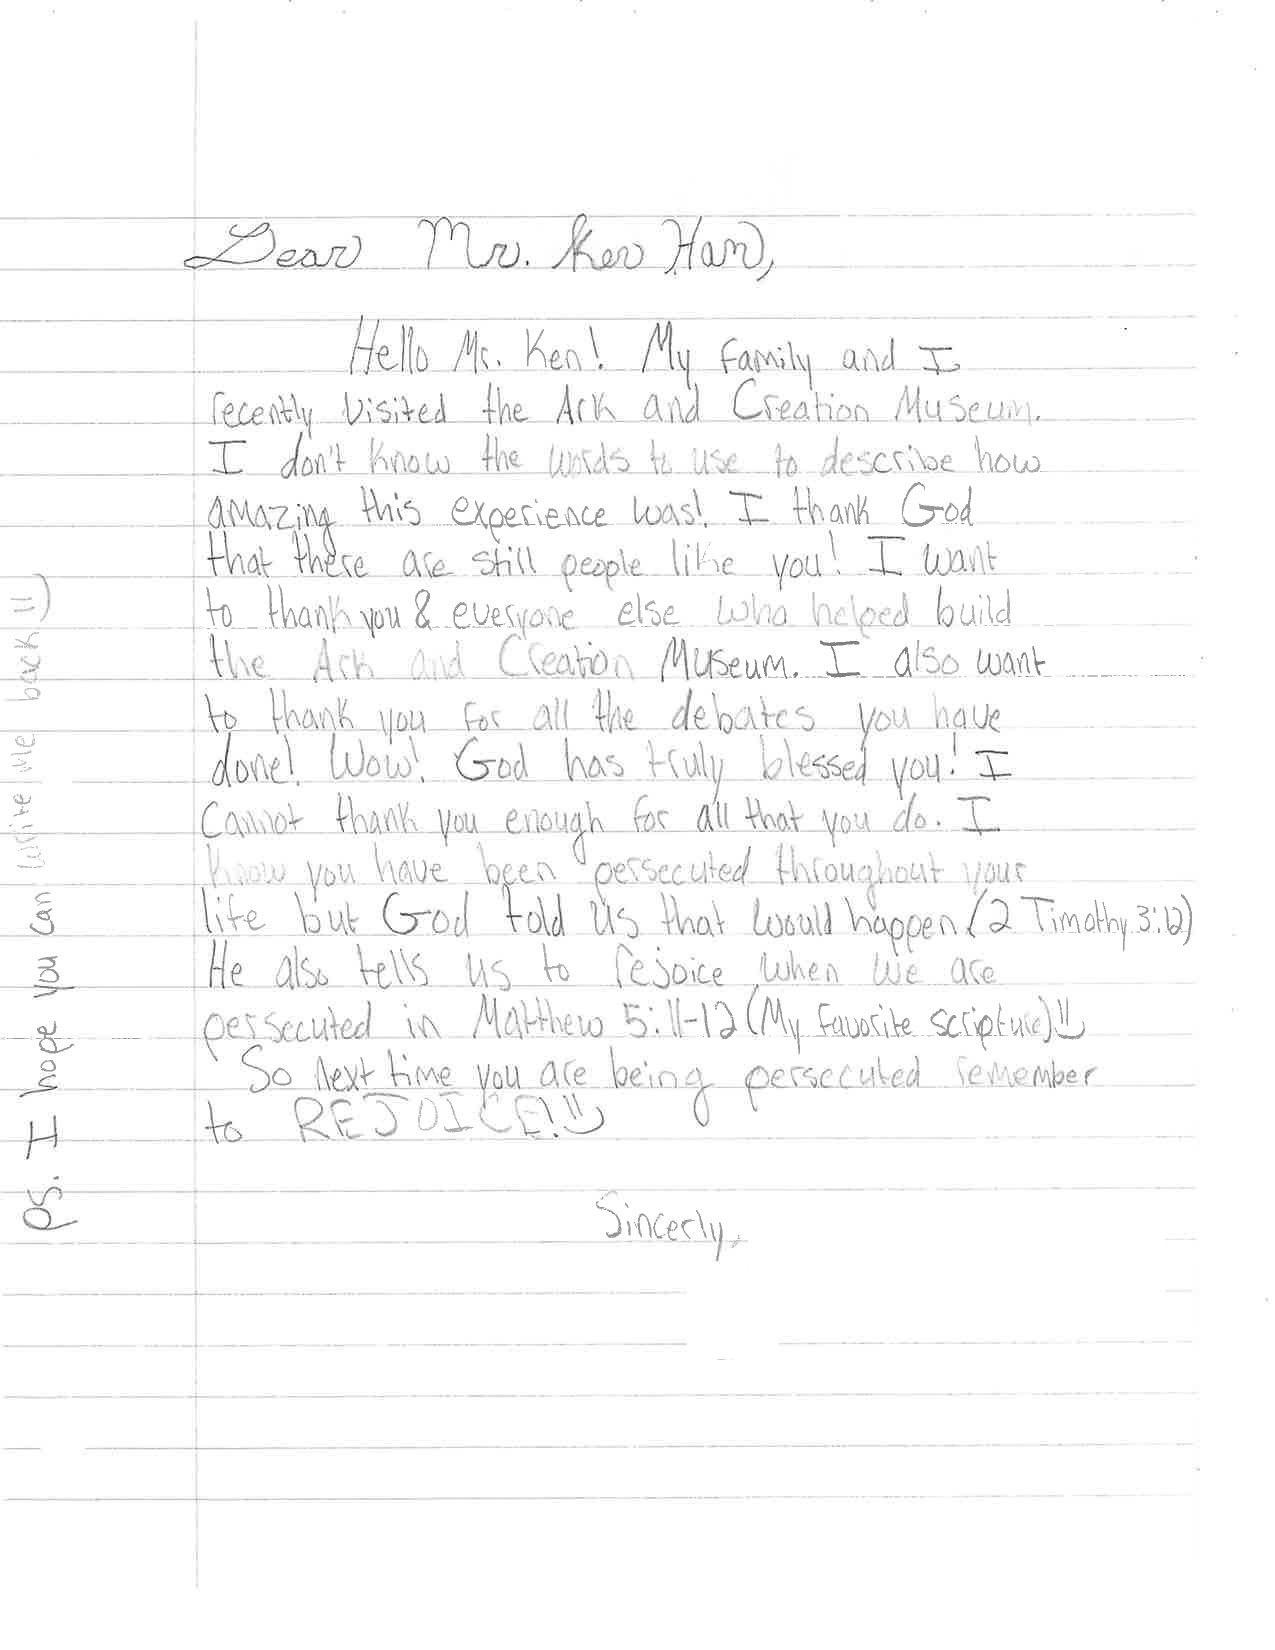 Dear Mr. Ken Ham,
Hello Mr. Ken! My family and I
recently visited the Ark and Creation Museum.
I don't know the words to use to describe how
amazing this experience was! I thank God
that there are still people like you! I want
to thank you & everyone else who helped build
the Ark and Creation Museum. I also want
to thank you for all the debates you have
done! Wow! God has truly blessed you! I
Cannot thank you enough for all that you do. I
know you have been persecuted throughout your
life but God told us that would happen (2 Timothy 3:12)
He also tells us to rejoice when we are
persecuted in Matthew 5:11-12 (My favorite scripture) =)
So next time you are being persecuted remember
to REJOICE! =)
Sincerly,
PS. I hope you can write me back =)